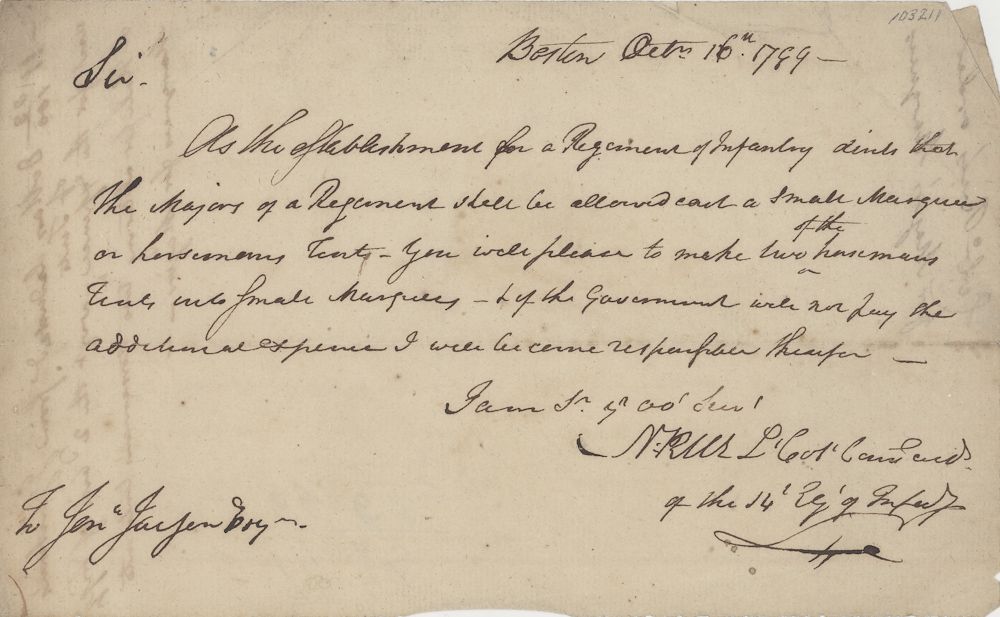 103211
Boston Octr 16th. 1799 –
Sir.
As the establishment for a Regiment of Infantry directs that
the Majors of a Regiment shall be allowed each a Small Marquee
or horsemans Tent – You will please to make two of the horsemans
Tents into small Marquees – & if the Government will not pay the
additional expence I will become responsible therefor —
I am Sr yr ob' Serv'
N. Rice Lt Col' Command.
of the 14t Reg' of Infy
To Jona Jackson Esqr.